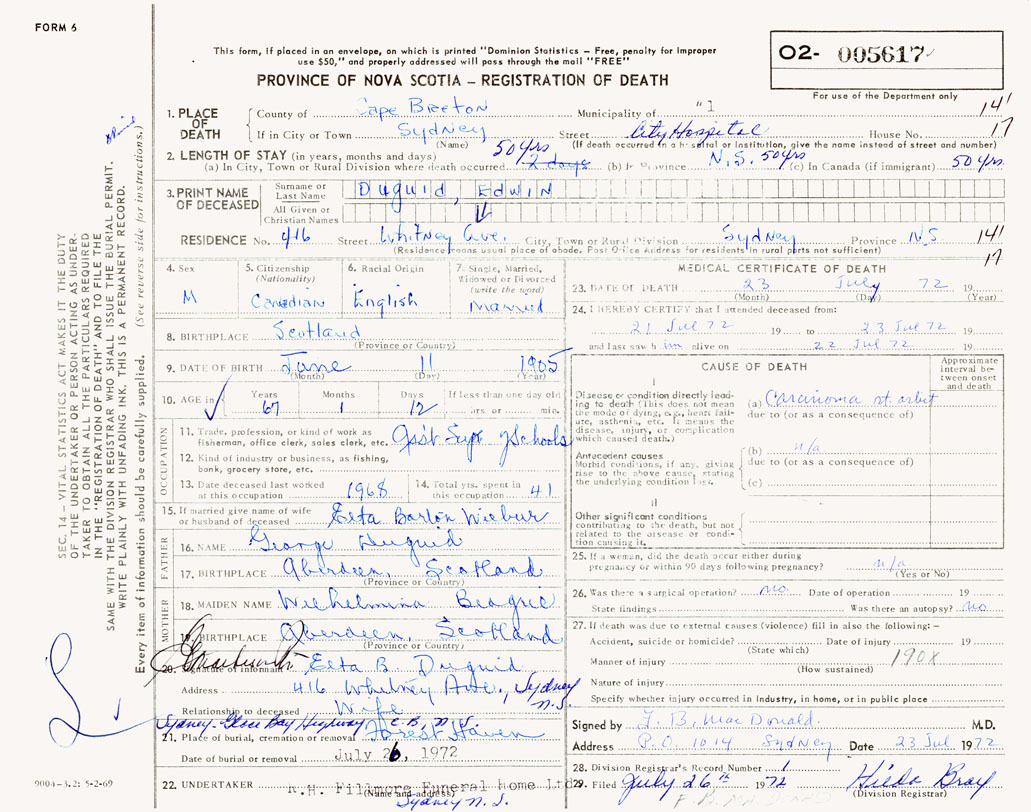 FORM 6
This form, if placed in an envelope, on which is printed "Dominion Statistics – Free, penalty for improper
use $50," and properly addressed will pass through the mail "FREE"
PROVINCE OF NOVA SCOTIA – REGISTRATION OF DEATH
O2- 005617
For use of the Department only
1. PLACE OF DEATH
County of Cape Breton Municipality of "1 14'
If in City or Town Sydney Street City Hospital House No. 17
(Name) (If death occurred in a hospital or Institution, give the name instead of street and number)
2. LENGTH OF STAY (in years, months and days) 50 yrs
(a) In City, Town or Rural Division where death occurred 2 days (b) In Province N.S. 50 yrs (c) In Canada (if immigrant) 50 yrs.
3. PRINT NAME OF DECEASED
Surname or Last Name Duguid, EDWIN
All Given or Christian Names
RESIDENCE No. 416 Street Whitney Ave. City, Town or Rural Division Sydney Province N.S 14'
(Residence means usual place of abode. Post Office Address for residents in rural parts not sufficient) 17
4. Sex M
5. Citizenship (Nationality) Canadian
6. Racial Origin English
7. Single, Married, Widowed or Divorced (write the word) Married
8. BIRTHPLACE Scotland
(Province or Country)
9. DATE OF BIRTH June 11 1905
(Month) (Day) (Year)
10. AGE in Years Months Days If less than one day old
67 1 12 hrs. or min.
OCCUPATION
11. Trade, profession, or kind of work as
fisherman, office clerk, sales clerk, etc. Ass't Supt of Schools
12. Kind of industry or business, as fishing,
bank, grocery store, etc.
13. Date deceased last worked
at this occupation 1968
14. Total yrs. spent in
this occupation 41
15. If married give name of wife
or husband of deceased Etta Barton Wilbur
FATHER
16. NAME George Duguid
17. BIRTHPLACE Aberdeen, Scotland
(Province or Country)
MOTHER
18. MAIDEN NAME Wilhelmina
19. BIRTHPLACE Aberdeen, Scotland
(Province or Country)
20. Signature of informant Etta B. Duguid
Address 416 Whitney Ave., Sydney N.S.
Relationship to deceased Wife
Sydney-Glace Bay Highway C.B. N.S.
21. Place of burial, cremation or removal Forest Haven
Date of burial or removal July 26, 1972
22. UNDERTAKER R.H. Fillmore Funeral home Ltd.
(Name and address)
Sydney N.S.
MEDICAL CERTIFICATE OF DEATH
23. DATE OF DEATH 23 July 72 19
(Month) (Day) (Year)
24. I HEREBY CERTIFY that I attended deceased from:
21 Jul 72 19 to 23 Jul 72 19
and last saw him alive on 22 Jul 72 19
CAUSE OF DEATH
Approximate interval between onset and death
I
Disease or condition directly leading to death (This does not mean
the mode of dying, e.g., heart failure, asthenia, etc. It means the
disease, injury, or complication
which caused death.)
(a) Carcinoma
due to (or as a consequence of)
Antecedent causes
Morbid conditions, if any, giving
rise to the above cause, stating
the underlying condition last.
(b) n/a
due to (or as a consequence of)
(c)
II
Other significant conditions
contributing to the death, but not
related to the disease or condition causing it.
25. If a woman, did the death occur either during
pregnancy or within 90 days following pregnancy? n/a
(Yes or No)
26. Was there a surgical operation? no Date of operation 19
State findings Was there an autopsy? no
27. If death was due to external causes (violence) fill in also the following:–
Accident, suicide or homicide? Date of injury 19
(State which)
Manner of injury 190X
(How sustained)
Nature of injury
Specify whether injury occurred in industry, in home, or in public place
Signed by F. B. MacDonald. M.D.
Address P.O. 1014 Sydney Date 23 Jul 1972
28. Division Registrar's Record Number 1
29. Filed July 26th 1972 Hilda Bray
(Division Registrar)
SEC. 14 – VITAL STATISTICS ACT MAKES IT THE DUTY
OF THE UNDERTAKER OR PERSON ACTING AS UNDERTAKER TO OBTAIN ALL THE PARTICULARS REQUIRED
IN THE "REGISTRATION OF DEATH" AND TO FILE THE
SAME WITH THE DIVISION REGISTRAR WHO SHALL ISSUE THE BURIAL PERMIT.
WRITE PLAINLY WITH UNFADING INK. THIS IS A PERMANENT RECORD.
Every item of information should be carefully supplied. (See reverse side for instructions.)
9004-3.2: 5-2-69